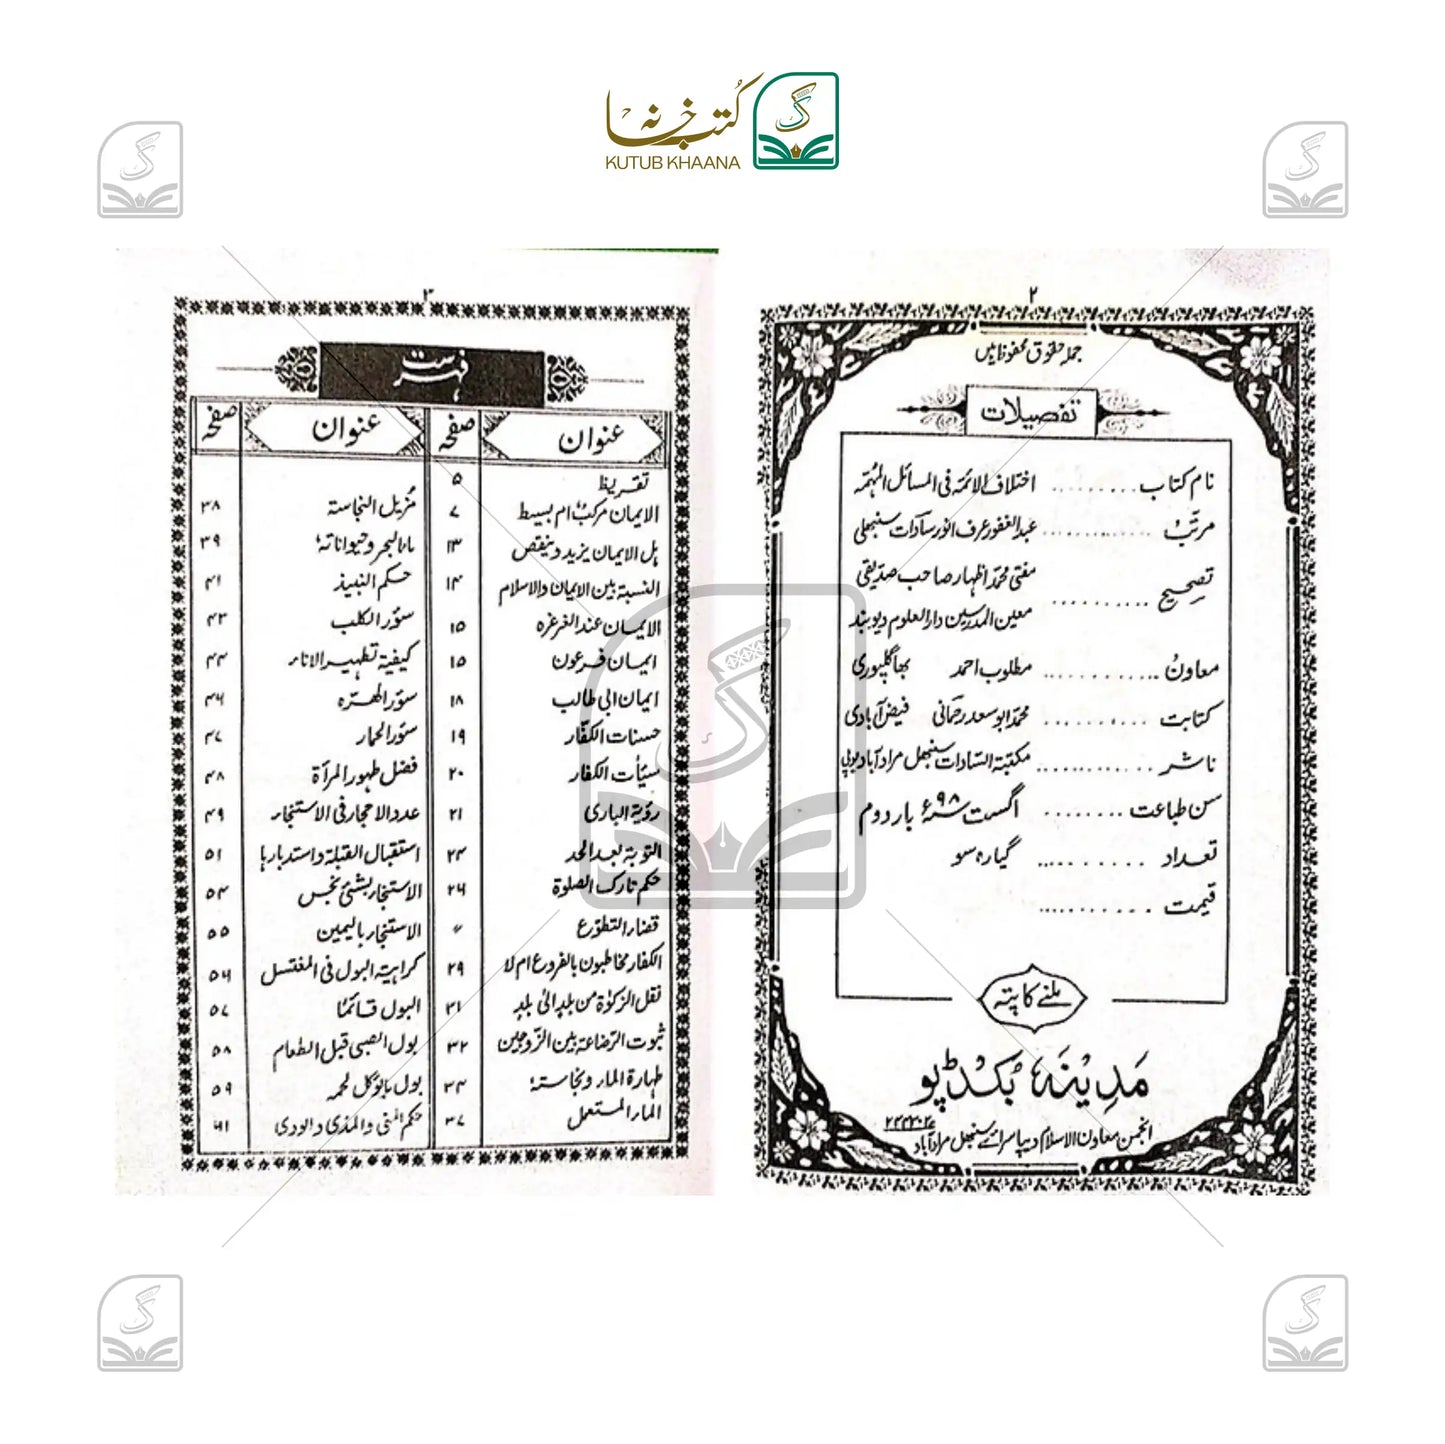 کتب خانہ
KUTUB KHAANA
۲
جملہ حقوق محفوظ ہیں
تفصیلات
نام کتاب .......... اختلاف الائمہ فی المسائل المہمہ
مرتب .......... عبد الغفور عرف انور سادات سنبھلی
تصحیح .......... مفتی محمد اظہار صاحب صدیقی
معین المدرسین دار العلوم دیوبند
معاون .......... مطلوب احمد بھاگلپوری
کتابت .......... محمد ابو سعد رحمانی فیض آبادی
ناشر .......... مکتبۃ السادات سنبھل مرادآباد یوپی
سن طباعت .......... اگست ۹۸ء بار دوم
تعداد .......... گیارہ سو
قیمت ..........
ملنے کا پتہ
مدینہ بکڈپو
انجمن معاون الاسلام دیپا سرائے سنبھل مرادآباد ۲۴۴۳۰۲
۳
فہرست
عنوان صفحہ عنوان صفحہ
تقریظ ۵
الایمان مرکب ام بسیط ۷
ہل الایمان یزید وینقص ۱۳
النسبۃ بین الایمان والاسلام ۱۴
الایمان عند الغرغرہ ۱۵
ایمان فرعون ۱۵
ایمان ابی طالب ۱۸
حسنات الکفار ۱۹
سیأت الکفار ۲۰
رؤیۃ الباری ۲۱
التوبۃ بعد الحد ۲۴
حکم تارک الصلوۃ ۲۶
قضاء التطوع ״
الکفار مخاطبون بالفروع ام لا ۲۹
نقل الزکوٰۃ من بلد الیٰ بلد ۳۱
ثبوت الرضاعۃ بین الزوجین ۳۲
طہارۃ الماء ونجاستہ ۳۴
الماء المستعمل ۳۷
مزیل النجاستہ ۳۸
ماء البحر وحیواناتہ ۳۹
حکم النبیذ ۴۱
سؤر الکلب ۴۳
کیفیۃ تطہیر الاناء ۴۴
سؤر الہرہ ۴۶
سؤر الحمار ۴۷
فضل طہور المرأۃ ۴۸
عدد الاحجار فی الاستنجاء ۴۹
استقبال القبلۃ واستدبارہا ۵۱
الاستنجاء بشئ نجس ۵۴
الاستنجاء بالیمین ۵۵
کراہیۃ البول فی المغتسل ۵۶
البول قائماً ۵۷
بول الصبی قبل الطعام ۵۸
بول مایؤکل لحمہ ۵۹
حکم المنی والمذی والودی ۶۱